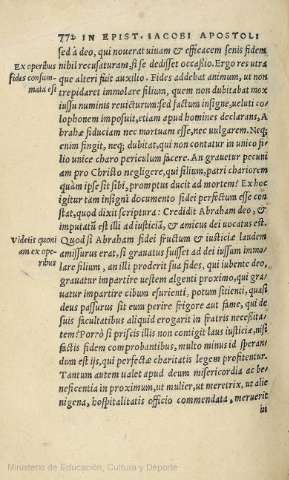 772 IN EPIST. IACOBI APOSTOLI
sed à deo, qui nouerat uiuam & efficacem senis fidem
Ex operibus nihil recusaturam, si se dedisset occasio. Ergo res utra
fides consum que alteri fuit auxilio. Fides addebat animum, ut non
mata est trepidaret immolare filium, quem non dubitabat mox
iussu numinis reuicturum: sed factum insigne, ueluti co
lophonem imposuit, etiam apud homines declarans, A
brahæ fiduciam nec mortuam esse, nec uulgarem. Neq;
enim fingit, neq; dubitat, qui non contatur in unico fi
lio unice charo periculum facere. An grauetur pecuni
am pro Christo negligere, qui filium, patri chariorem
quàm ipse sit sibi, promptus ducit ad mortem? Ex hoc
igitur tam insigni documento fidei perfectum esse con
stat, quod dixit scriptura: Credidit Abraham deo, &
imputatū est illi ad iusticiā, & amicus dei uocatus est.
Videtis quoni Quod si Abraham fidei fructum & iusticiæ laudem
am ex ope amissurus erat, si grauatus fuisset ad dei iussum immo
ribus lare filium, an illi proderit sua fides, qui iubente deo,
grauatur impartire uestem algenti proximo, qui gra
uatur impartire cibum esurienti, potum sitienti, quasi
deus passurus sit eum perire frigore aut fame, qui de
suis facultatibus aliquid erogarit in fratris necessita
tem? Porrò si priscis illis non contigit laus iusticiæ, nisi
factis fidem comprobantibus, multo minus id speran
dum est ijs, qui perfectæ charitatis legem profitentur.
Tantum autem ualet apud deum misericordia ac be
neficentia in proximum, ut mulier, ut meretrix, ut alie
nigena, hospitalitatis officio commendata, meruerit
in
Ministerio de Educación, Cultura y Deporte